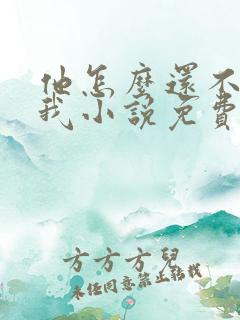 他怎麼還不
我小說免費
方方方兒
未經同意禁止轉載